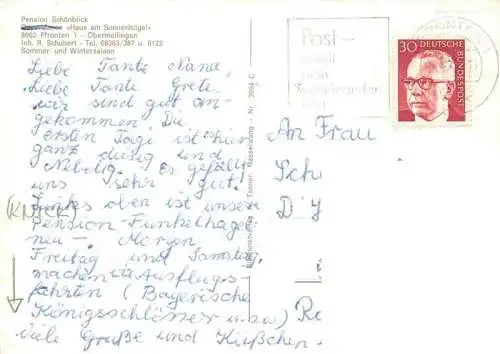 Pension Schönblick
«Haus am Sonnenhügel»
8962 Pfronten 1 - Obermeilingen
Inh. R. Schubert - Tel. 08363/287 u. 8122
Sommer- und Wintersaison
Liebe Tante Nana,
Liebe Tante Grete,
wir sind gut an-
gekommen. Die
ersten Tage ist hier
ganz dunig und
Neblig. Es gefällt
uns sehr gut!
Links oben ist unsere
(KNICK)
Pension - Funkelnagel
neu -. Morgen
Freitag und Samstag
machen wir Ausflugs-
fahrten (Bayerische
Königsschlösser u.s.w)
viele Grüße und Küßchen
Post -
30 DEUTSCHE
BUNDESPOST
An Frau
Sch
D'
Re